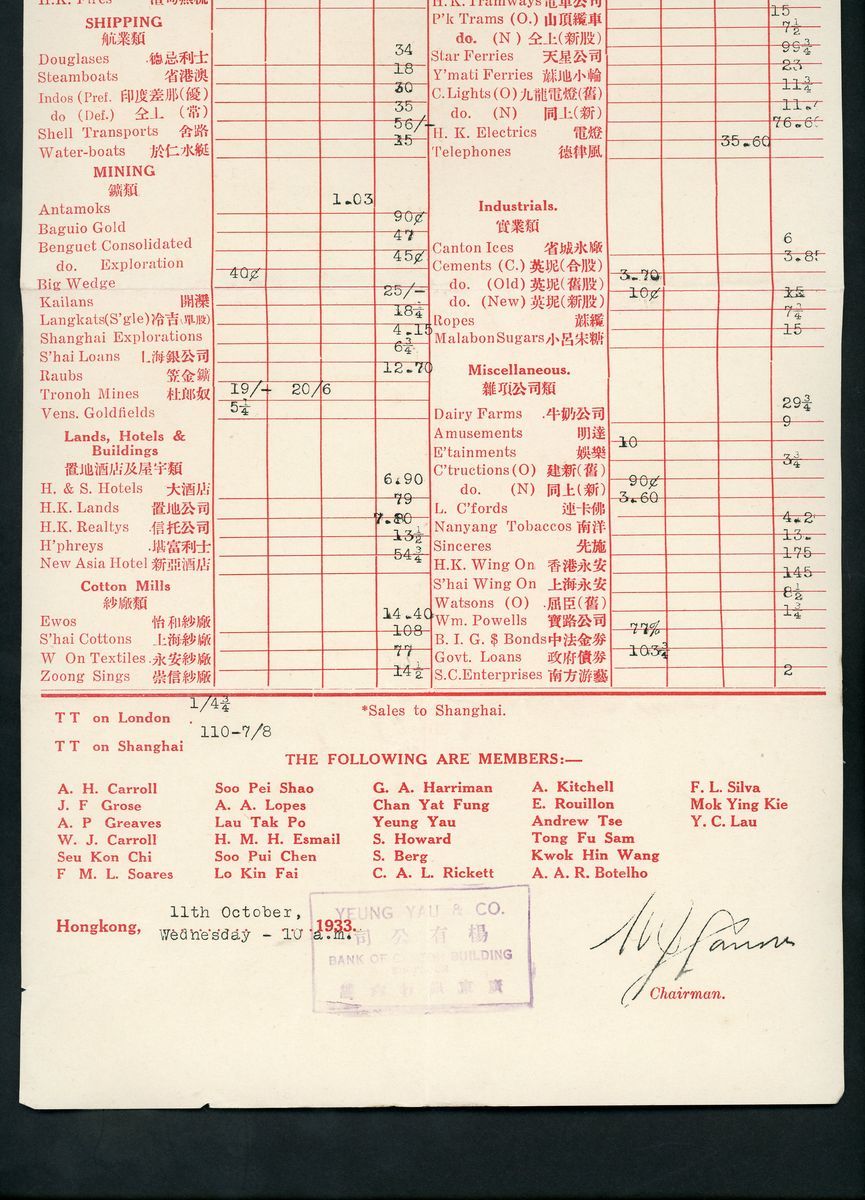 H.K. Fires
SHIPPING
航業類
Douglases 德忌利士 34
Steamboats 省港澳 18
Indos (Pref. 印度差那(優) 30
do (Def.) 仝上 (常) 35
Shell Transports 舍路 56/-
Water-boats 於仁水艇 15
MINING
鑛類
Antamoks 1.03
Baguio Gold 90¢
Benguet Consolidated 47
do. Exploration 45¢
Big Wedge 40¢
Kailans 開灤 25/-
Langkats(S'gle)冷吉(單股) 18¼
Shanghai Explorations 4.15
S'hai Loans 上海銀公司 6¾
Raubs 笠金鑛 12.70
Tronoh Mines 杜郎奴 19/- 20/6
Vens. Goldfields 5¼
Lands, Hotels &
Buildings
置地酒店及屋宇類
H. & S. Hotels 大酒店 6.90
H.K. Lands 置地公司 79
H.K. Realtys 信托公司 7.80
H'phreys 堪富利士 13½
New Asia Hotel 新亞酒店 54¾
Cotton Mills
紗廠類
Ewos 怡和紗廠 14.40
S'hai Cottons 上海紗廠 108
W On Textiles 永安紗廠 77
Zoong Sings 崇信紗廠 14½
H.K. Tramways 電車公司 15
P'k Trams (O.) 山頂纜車 7½
do. (N) 仝上(新股) 99¾
Star Ferries 天星公司
Y'mati Ferries 蔴地小輪 23
C.Lights (O) 九龍電燈(舊) 11¾
do. (N) 同上(新) 11.
H. K. Electrics 電燈 76.6
Telephones 德律風 35.60
Industrials.
實業類
Canton Ices 省城氷廠 6
Cements (C.) 英坭(合股) 3.85
do. (Old) 英坭(舊股) 3.70
do. (New) 英坭(新股) 10¢ 15
Ropes 蔴纜 7¾
Malabon Sugars 小呂宋糖 15
Miscellaneous.
雜項公司類
Dairy Farms 牛奶公司 29¾
Amusements 明達 9
E'tainments 娛樂 10
C'tructions (O) 建新(舊) 3¾
do. (N) 同上(新) 90¢
L. C'fords 連卡佛 3.60
Nanyang Tobaccos 南洋 4.2
Sinceres 先施 13.
H.K. Wing On 香港永安 175
S'hai Wing On 上海永安 145
Watsons (O) 屈臣(舊) 8½
Wm. Powells 寶路公司 1¾
B. I. G. $ Bonds 中法金券 77%
Govt. Loans 政府債券 103¾
S.C.Enterprises 南方游藝 2
TT on London 1/4¾
*Sales to Shanghai.
TT on Shanghai 110-7/8
THE FOLLOWING ARE MEMBERS:—
A. H. Carroll Soo Pei Shao G. A. Harriman A. Kitchell F. L. Silva
J. F Grose A. A. Lopes Chan Yat Fung E. Rouillon Mok Ying Kie
A. P Greaves Lau Tak Po Yeung Yau Andrew Tse Y. C. Lau
W. J. Carroll H. M. H. Esmail S. Howard Tong Fu Sam
Seu Kon Chi Soo Pui Chen S. Berg Kwok Hin Wang
F M. L. Soares Lo Kin Fai C. A. L. Rickett A. A. R. Botelho
Hongkong, 11th October, 1933.
Wednesday - 10 a.m.
YEUNG YAU & CO.
司公有楊
BANK OF CANTON BUILDING
Chairman.